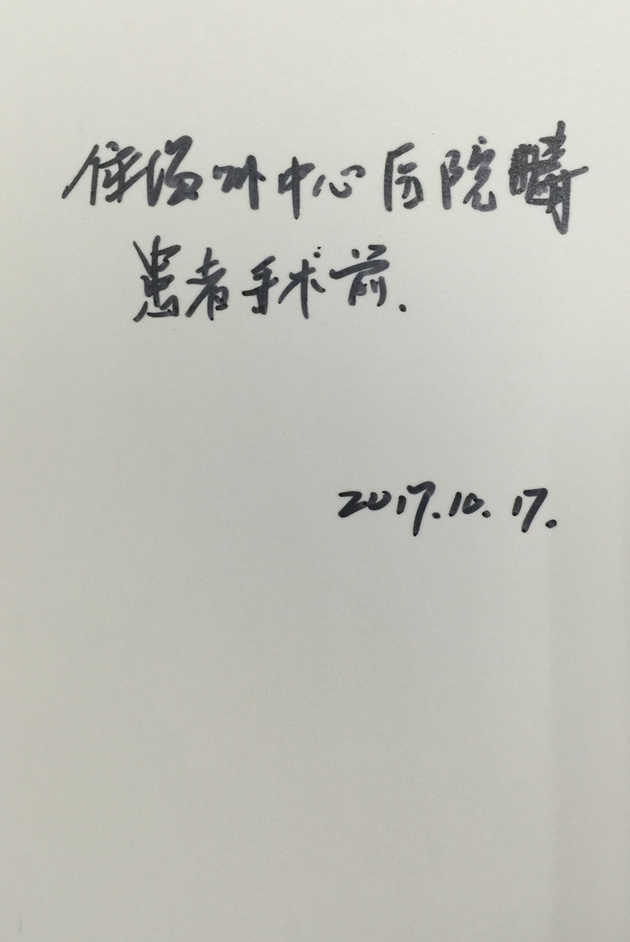 温州中心医院
患者手术前.
2017.10.17.